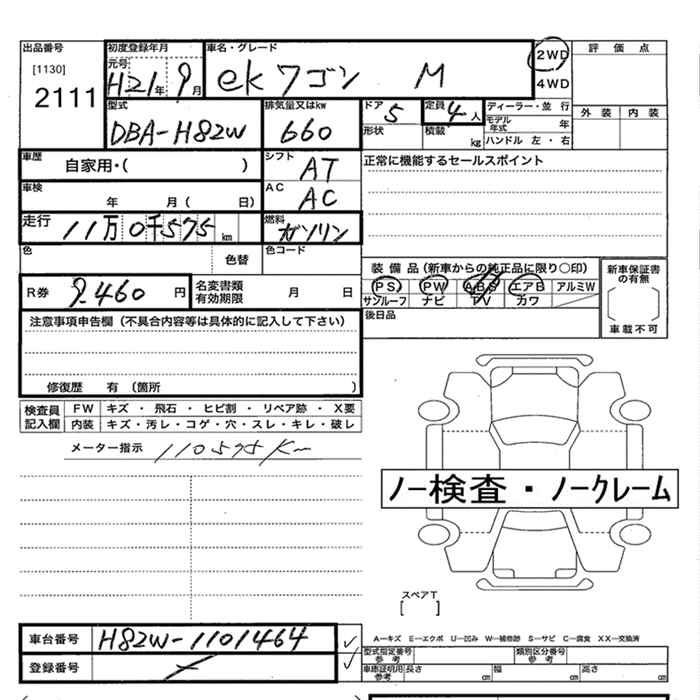 出品番号 初度登録年月 車名・グレード 2WD 評価点
[1130] 元号 H21年9月 ekワゴン M 4WD
2111 外装 内装
型式 排気量又はkw ドア 5 定員 4人 ディーラー・並行
DBA-H82W 660 形状 積載 kg モデル年式 年
ハンドル 左・右
車歴 自家用・( ) シフト AT 正常に機能するセールスポイント
車検 年 月( 日) AC AC
走行 11万0千575km 燃料 ガソリン
色 色替 色コード
装備品(新車からの純正品に限り○印) 新車保証書の有無
R券 9.460円 名変書類有効期限 月 日 PS PW ABS エアB アルミW
サンルーフ ナビ TV カワ
注意事項申告欄(不具合内容等は具体的に記入して下さい) 後日品 車載不可
修復歴 有(箇所 )
検査員記入欄 FW キズ・飛石・ヒビ割・リペア跡・X要
内装 キズ・汚レ・コゲ・穴・スレ・キレ・破レ
メーター指示 110575Km
ノー検査・ノークレーム
スペアT
[ ]
車台番号 H82W-1101464
A—キズ E—エクボ U—凹み W—補修跡 S—サビ C—腐食 XX—交換済
登録番号
型式指定番号 参考 類別区分番号 参考
車庫証明用 参考 長さ cm 幅 cm 高さ cm